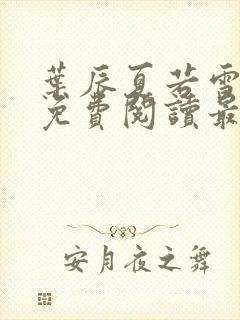 葉辰夏若雪
免費閱讀最
安月夜之舞